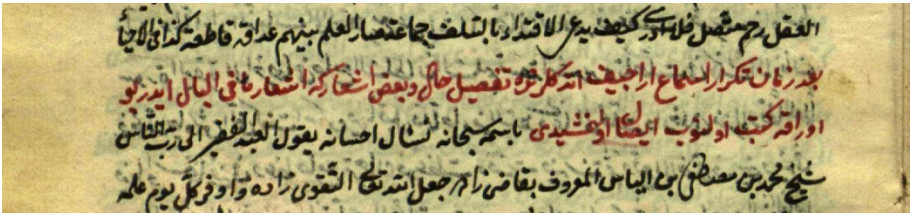 العقل رحم متصل فلا ادرى كيف يدعى الاقتداء بالسلف جماعة صار العلم بينهم عداوة قاطعة كذا فى الاحيا
بعد زمان تكرار استماع اراجيف اتدكلرنده تفصيل حال وبعض اشعار كه اشعار ما فى البال ايدر بو
اوراقه كتب اولنوب ايصال اولنمشيدى باسمه سبحانه نسئال احسانه يقول العبد الفقير الى رب الناس
شيخ محمد بن مصطفى بن الياس المعروف بقاضى زاده جعل الله تعالى التقوى زاده واوفر كل يوم علمه